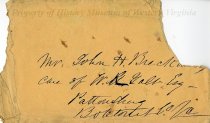 Property of History Museum of Western Virginia
Mr. John H. Brock
care of W. Galt Esq
Pattonsburg
Botetourt Co Va